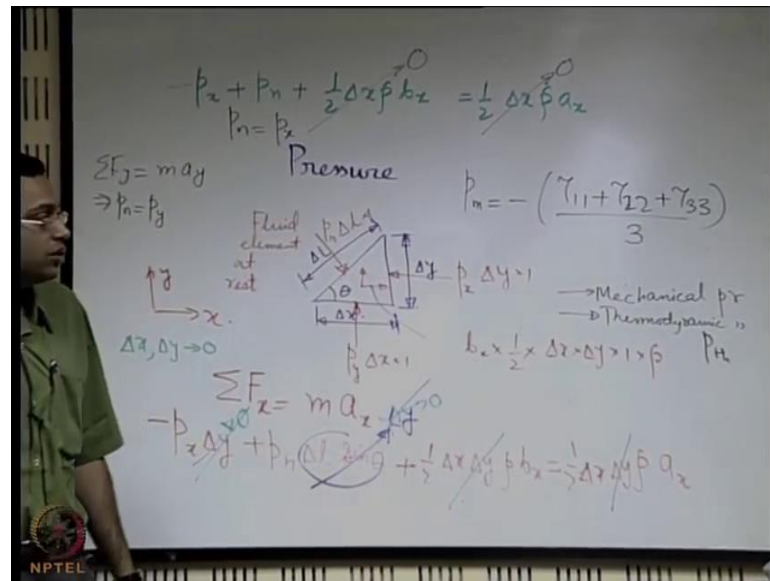 -p_x + p_n + 1/2 Δx ρ b_x = 1/2 Δx ρ a_x
0
0
p_n = p_x
ΣF_y = m a_y
⇒ p_n = p_y
Pressure
p_m = - (τ_11 + τ_22 + τ_33) / 3
Fluid
element
at
rest
p_n Δl·1
Δl
θ
Δy
p_x Δy·1
Δx
p_y Δx·1
y
x
Δx, Δy → 0
→ Mechanical pr
→ Thermodynamic "
p_th
b_x × 1/2 × Δx × Δy × 1 × ρ
ΣF_x = m a_x
Δy → 0
-p_x Δy + p_n Δl sinθ + 1/2 Δx Δy ρ b_x = 1/2 Δx Δy ρ a_x
NPTEL